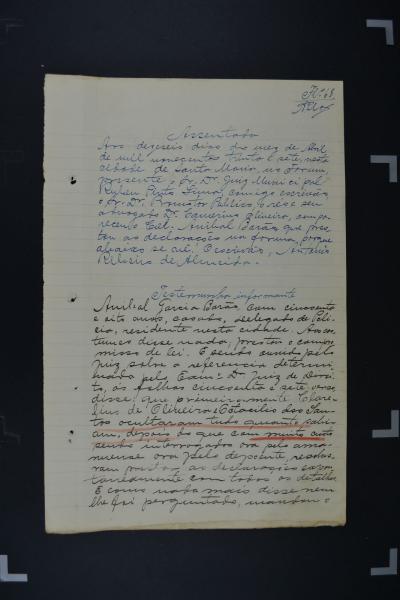 Fl. 68
Assentada
Aos dezeseis dias do mez de Abril
de mil novecentos trinta e sete, nesta
cidade de Santo Maria, no Forum,
presente o Sr. Dr. Juiz Municipal
Ruben Pinto Lima, comigo escrivão
o Sr. Dr. Promotor Publico e seu
advogado Dr. Oliveira, compa
receu Cel. Anibal Barão, que pres
tou as declarações na forma, porque
abaixo se vê. Escrivão, Antonio
Ribeiro de Almeida.
Testemunha informante
Anibal Garcia Barão, com cincoenta
e oito anos, casado, delegado de Poli
cia, residente nesta cidade. Aos cos
tumes disse nada, prestou o compro
misso de lei. E sendo ouvido pelo
Juiz sobre a referencia determi
nada pelo Exmo. Dr. Juiz de Direi
to, ás folhas cincoenta e sete, verso
disse: que primeiramente Clare
de Oliveira e Octacilio dos San
tos ocultaram tudo quanto sabi
am, depois do que com muito custo
sendo interrogados ora pelo ama
nuense ora pelo depoente, resolve
ram prestar as declarações espon
taneamente com todos os detalhes
E como nada mais disse nem
lhe foi perguntado, mandou o